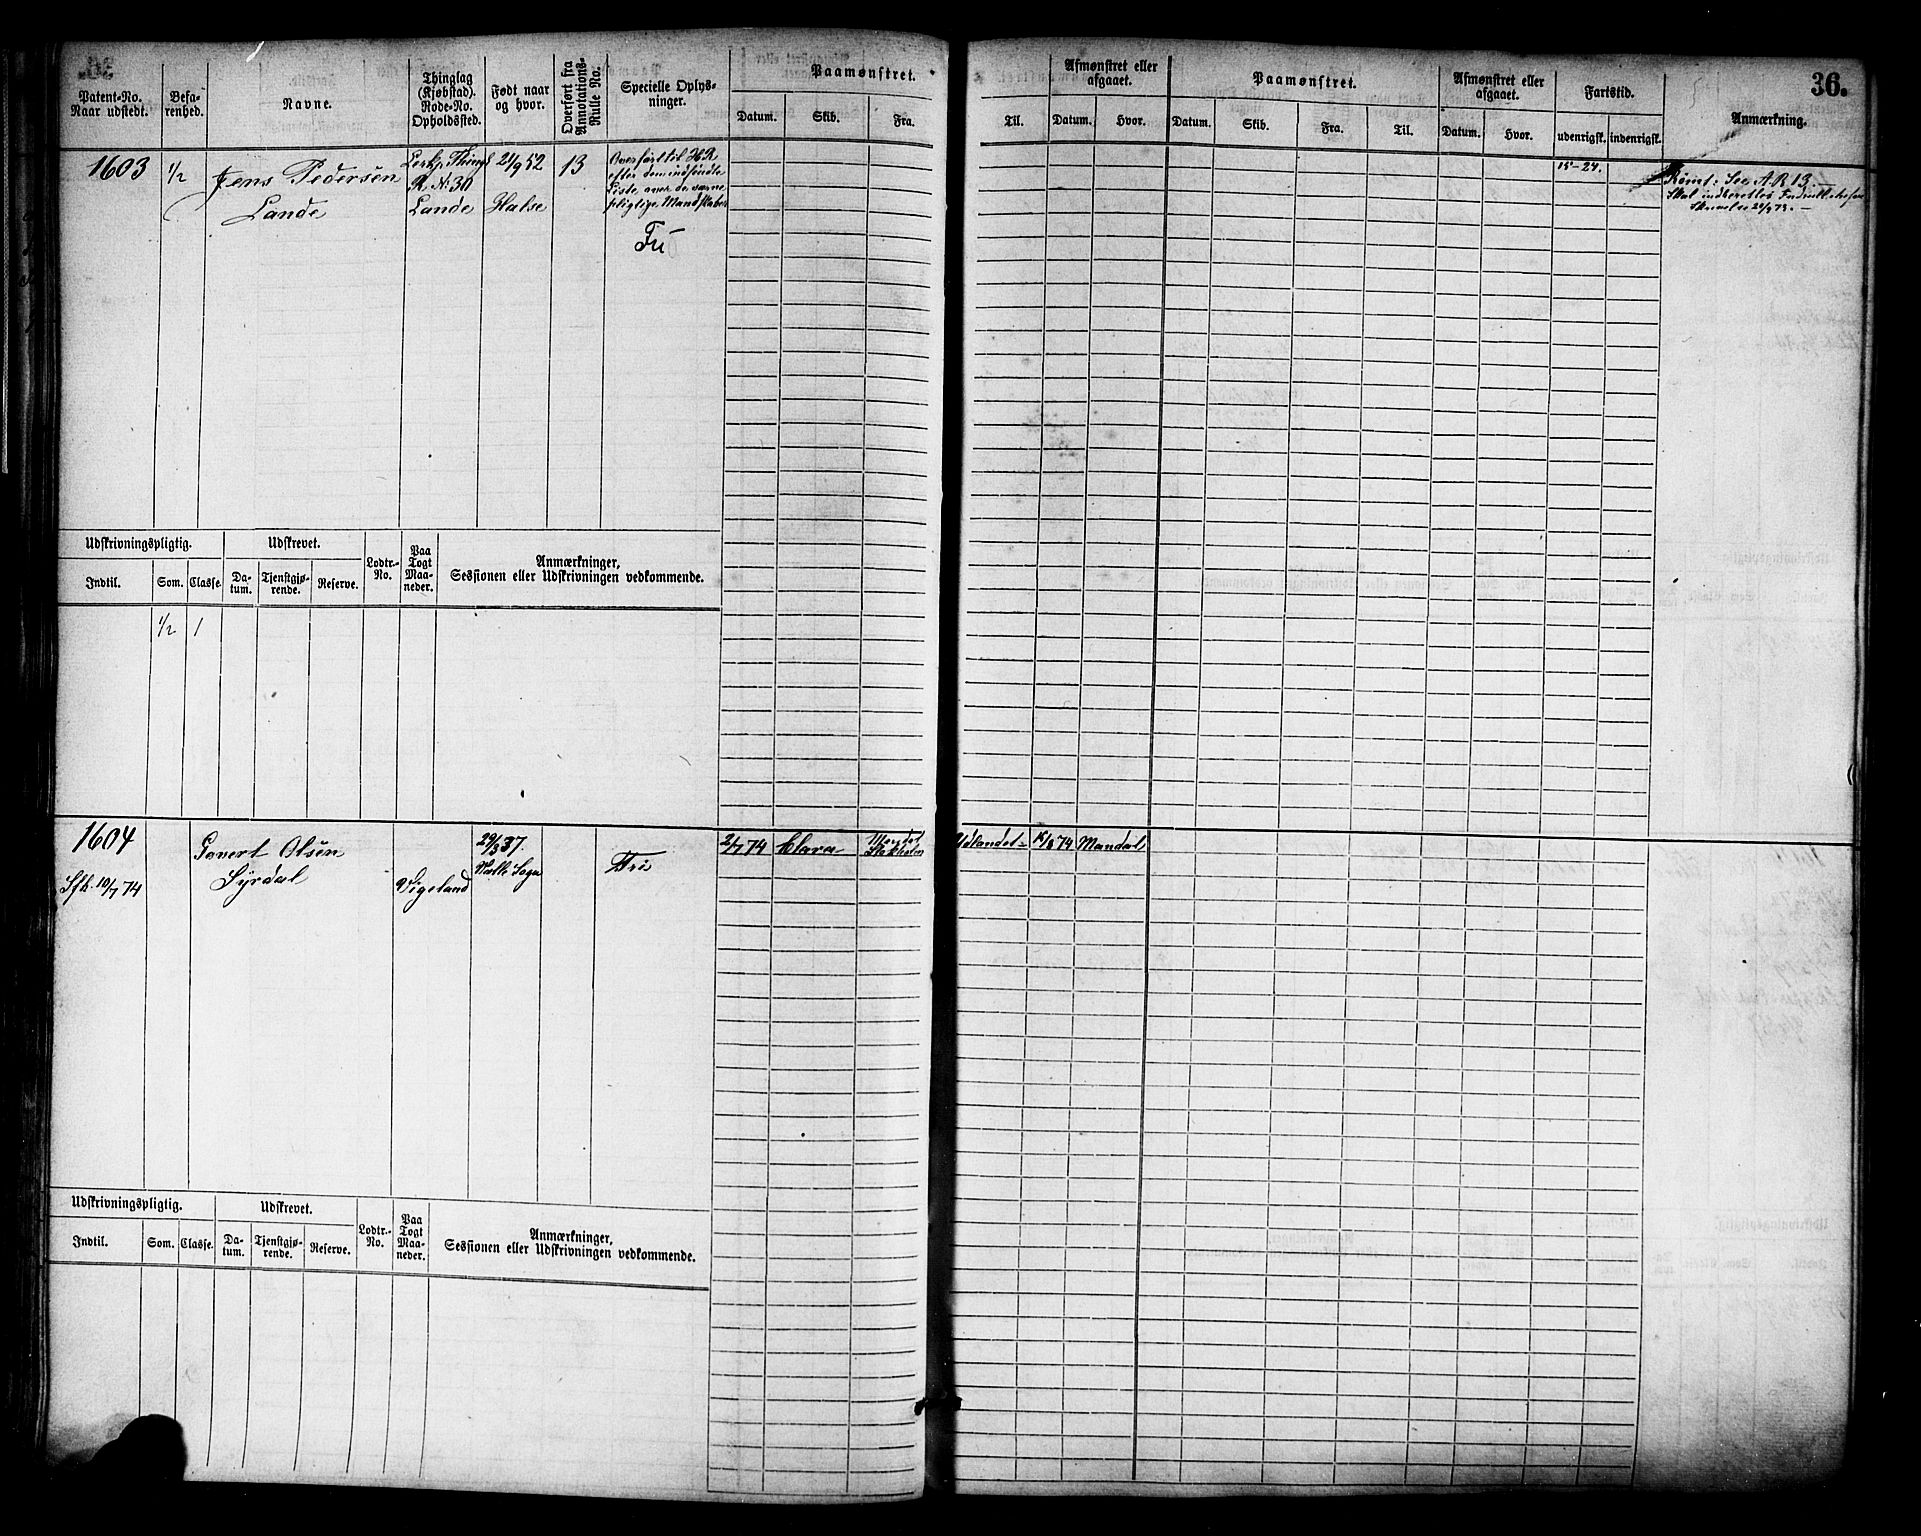 36.
Patent-No.
Naar udstedt.
Befa-
renhed.
Navne.
Thinglag
(Kjøbstad).
Rode-No.
Opholdssted.
Født naar
og hvor.
Overført fra
Annotations-
Rulle No.
Specielle Oplys-
ninger.
Paamønstret.
Datum. Skib. Fra.
Til.
Afmønstret eller
afgaaet.
Datum. Hvor.
Paamønstret.
Datum. Skib. Fra. Til.
Afmønstret eller
afgaaet.
Datum. Hvor.
Fartstid.
udenrigsk. indenrigsk.
Anmærkning.
1603
1/2
Jens Pedersen
Lande
R. No 30
Lande
21/9 52
Halse
13
Overført til H R
efter den indsendte
Liste over de værne
pligtige Mandskaber
Fri
15-24.
Rømt: See A.R 13.
Udskrivningspligtig. Udskrevet. Lodtr.-
No.
Paa
Togt
Maa-
neder.
Anmærkninger,
Sessionen eller Udskrivningen vedkommende.
Indtil. Som. Classe. Da-
tum. Tjenstgjø-
rende. Reserve.
1/2 1
1604
Govert Olsen
Syrdal
Vigeland
29/3 37.
Valle Sogn
Fri
2/7 74 Clara Udlandet 15/8 74 Mandal
Sfh. 10/7 74
Udskrivningspligtig. Udskrevet. Lodtr.-
No.
Paa
Togt
Maa-
neder.
Anmærkninger,
Sessionen eller Udskrivningen vedkommende.
Indtil. Som. Classe. Da-
tum. Tjenstgjø-
rende. Reserve.